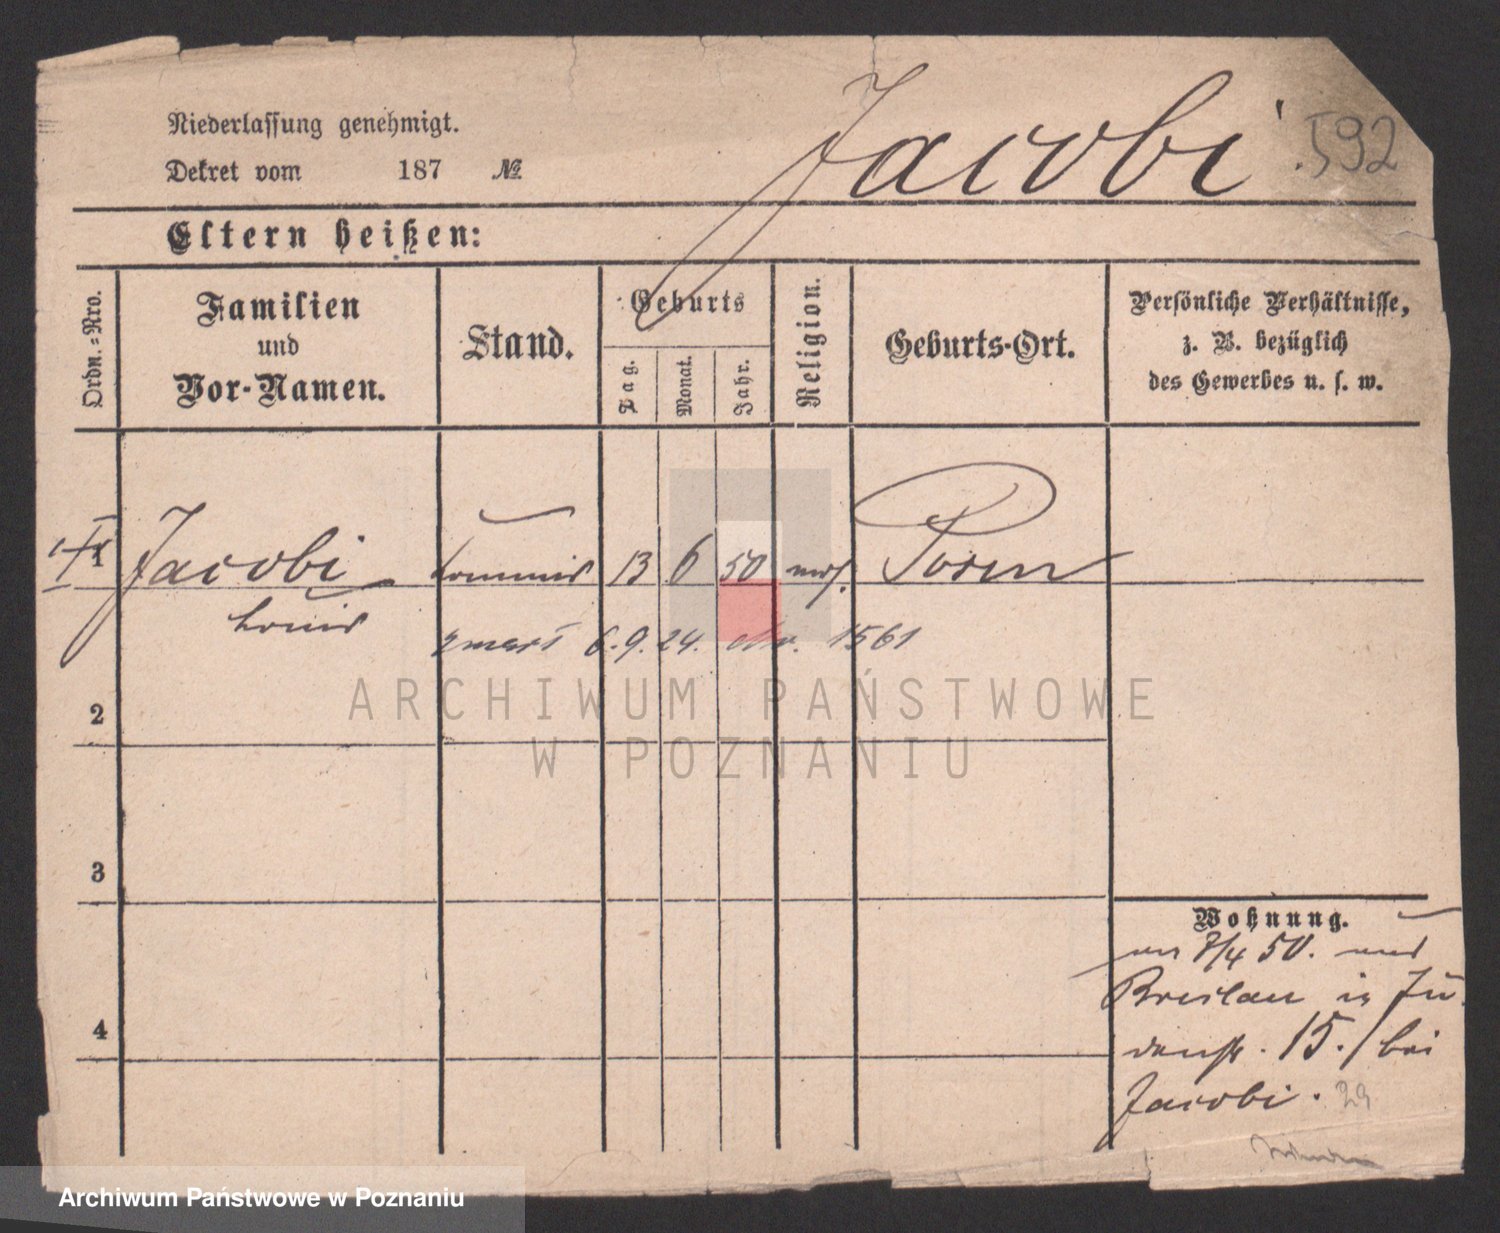 Niederlassung genehmigt.
Dekret vom 187 №
Jacobi
592
Eltern heißen:
Ordn.=Nro.
Familien
und
Vor-Namen.
Stand.
Geburts
Tag.
Monat.
Jahr.
Religion.
Geburts-Ort.
Persönliche Verhältnisse,
z. B. bezüglich
des Gewerbes u. s. w.
1
Jacobi
Commis
13
6
50
mos.
Posen
Louis
zmarł 6.9.24. Nr. 1561
ARCHIWUM PAŃSTWOWE
W POZNANIU
2
3
4
Wohnung.
7/4 50.
Breslau in Ju
denstr. 15. / bei
Jacobi. 29
Archiwum Państwowe w Poznaniu